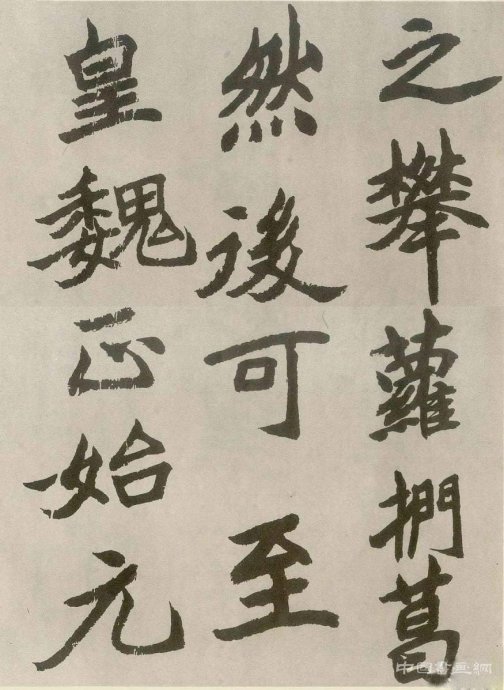 之攀蘿捫葛
然後可至
皇魏正始元
中国书画網